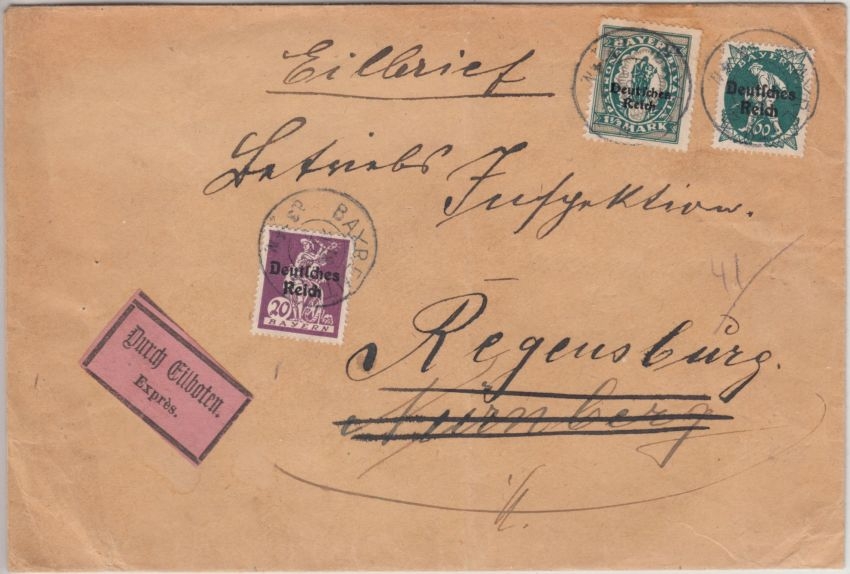 Eilbrief
BAYERN
Deutsches
Reich
1½ MARK
BAYERN
Deutsches
Reich
60
Betriebs
Inspektion.
BAYR
Deutsches
Reich
20
BAYERN
41
Regensburg.
Nürnberg
Durch Eilboten.
Exprès.